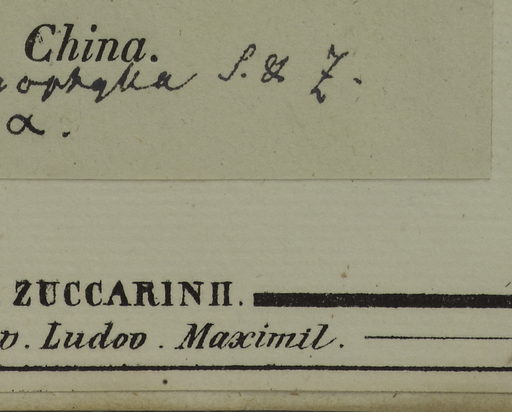 China.
ophylla S. & Z.
α.
ZUCCARINII.
v. Ludov. Maximil.